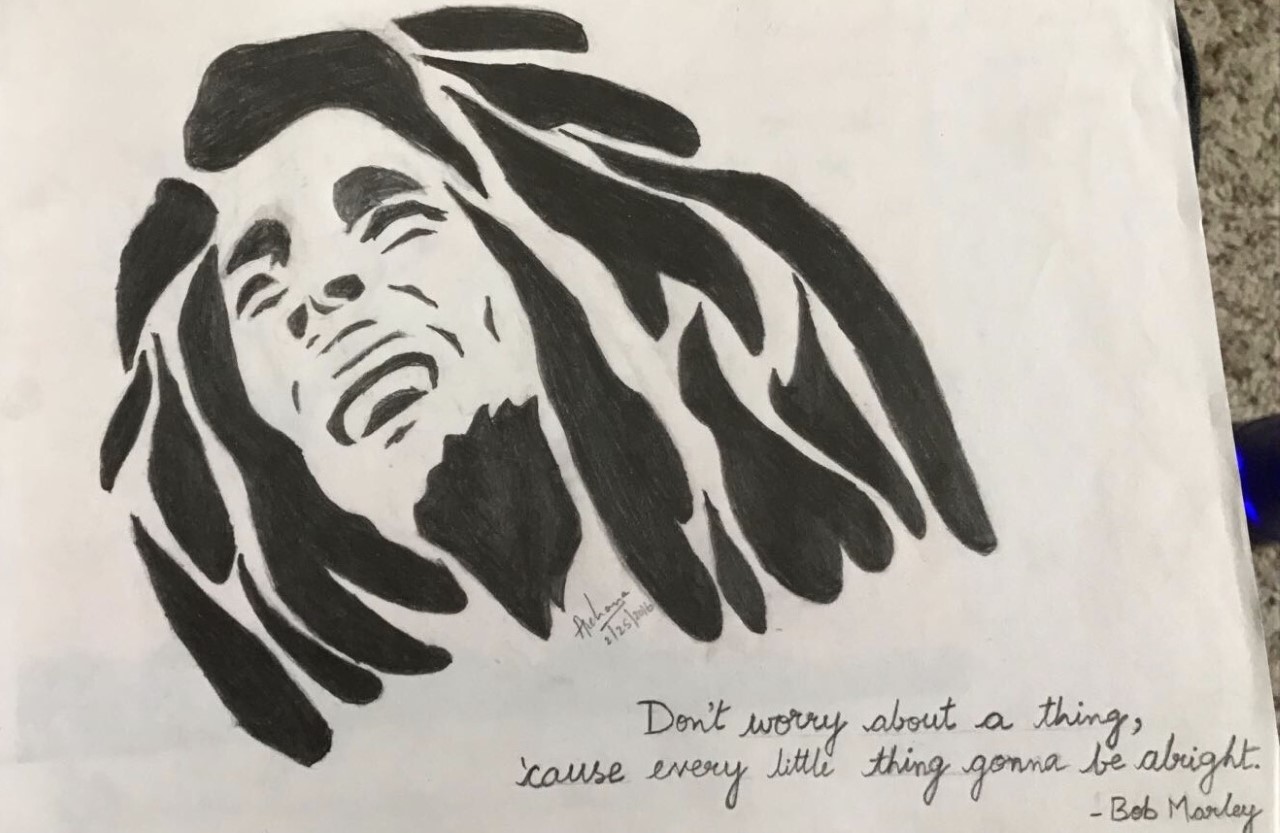 Archana
2/25/2016
Don't worry about a thing,
'cause every little thing gonna be alright.
- Bob Marley